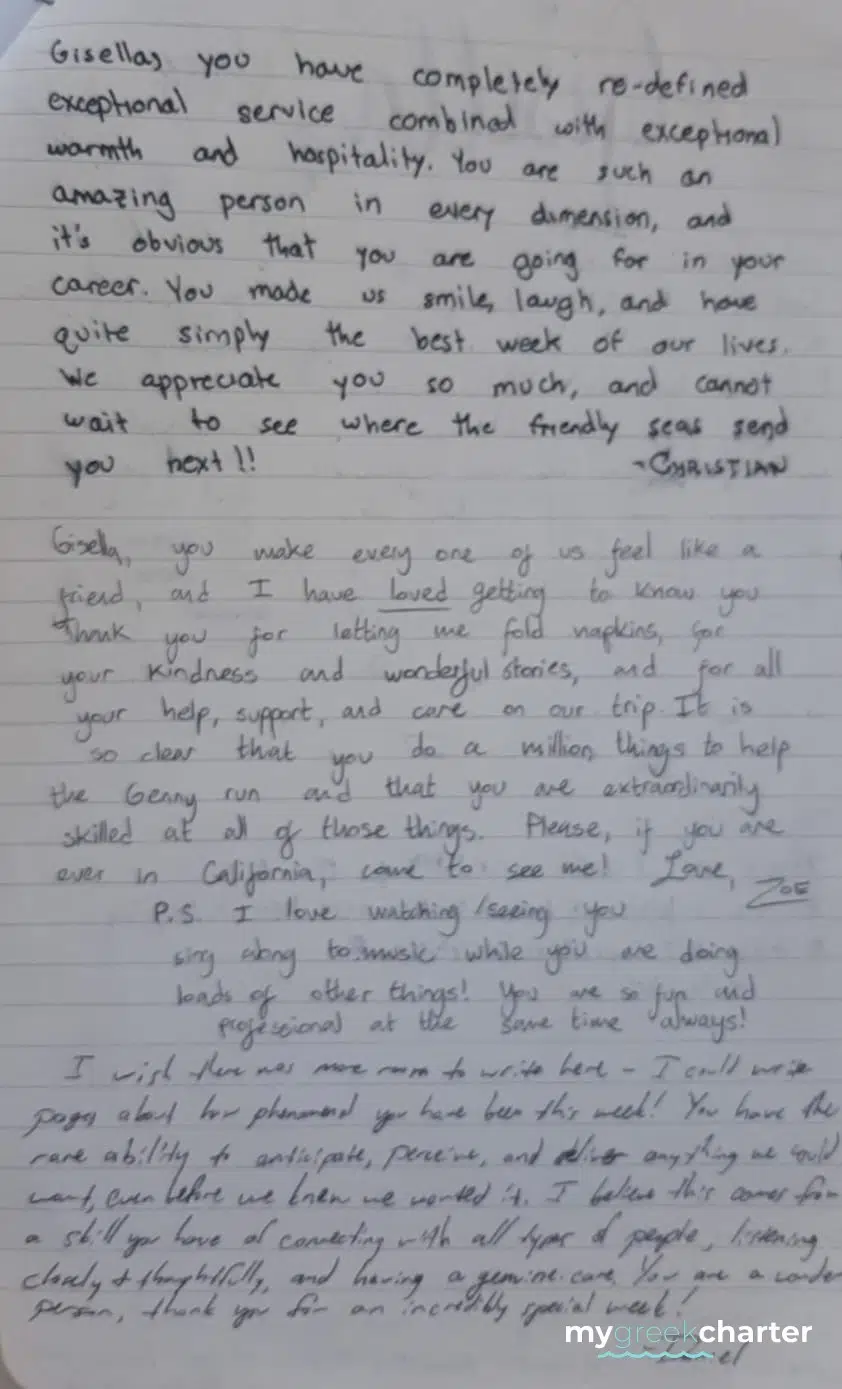 Gisella, you have completely re-defined
exceptional service combined with exceptional
warmth and hospitality. You are such an
amazing person in every dimension, and
it's obvious that you are going for in your
career. You made us smile, laugh, and have
quite simply the best week of our lives.
We appreciate you so much, and cannot
wait to see where the friendly seas send
you next!!
-CHRISTIAN
Gisella, you make every one of us feel like a
friend, and I have loved getting to know you
Thank you for letting me fold napkins, for
your kindness and wonderful stories, and for all
your help, support, and care on our trip. It is
so clear that you do a million things to help
the Genny run and that you are extraordinarily
skilled at all of those things. Please, if you are
ever in California, come to see me! Love,
ZOE
P.S. I love watching/seeing you
sing along to music while you are doing
loads of other things! You are so fun and
professional at the same time always!
I wish there was more room to write here - I could write
pages about how phenomenal you have been this week! You have the
rare ability to anticipate, perceive, and deliver anything we could
want, even before we knew we wanted it. I believe this comes from
a skill you have of connecting with all types of people, listening
closely & thoughtfully, and having a genuine care. You are a
person, thank you for an incredibly special week!
mygreekcharter